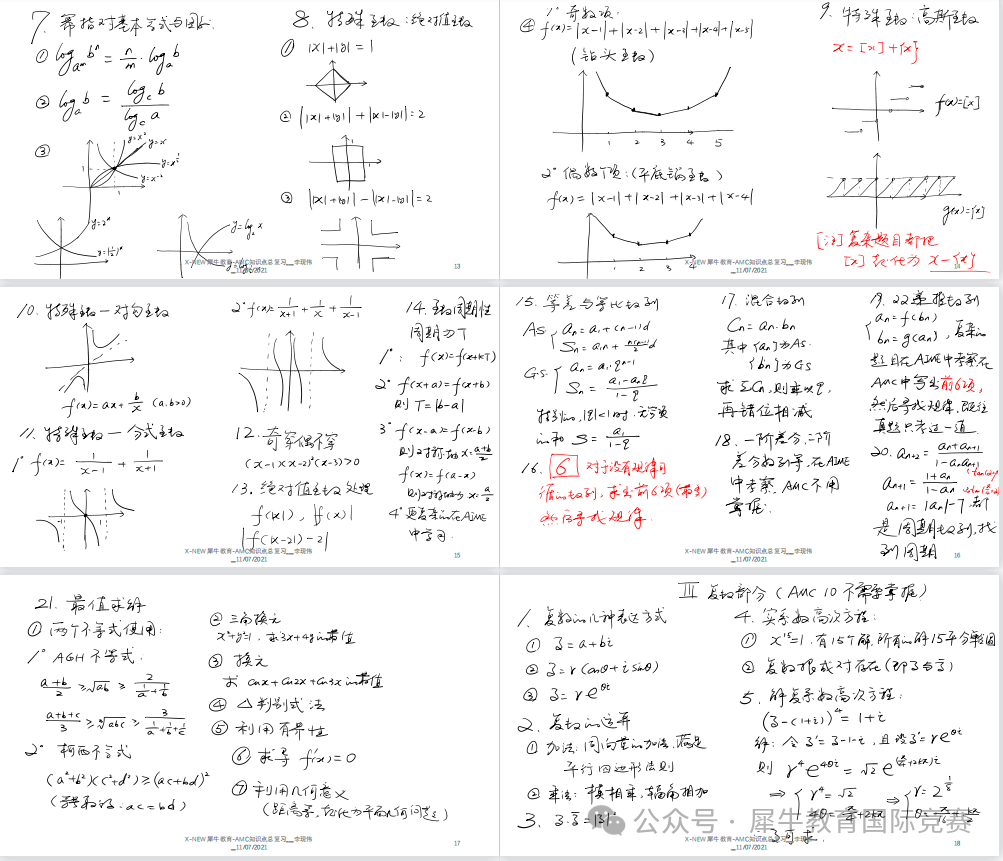 7. 幂指对基本公式与图象:
① log_{a^m} b^n = n/m · log_a b
② log_a b = log_c b / log_c a
③
y=x²
y=x
y=2^x
y=log_2 x
8. 特殊函数:绝对值函数
① |x|+|y|=1
② ||x|+|y||+||x|-|y||=2
③ ||x|+|y||-||x|-|y||=2
X-NEW 犀牛教育-AMC知识点总复习__李现伟
__11/07/2021
13
1° 奇数项:
④ f(x)=|x-1|+|x-2|+|x-3|+|x-4|+|x-5|
(钻头函数)
1 2 3 4 5
2° 偶数项:(平底锅函数)
f(x)=|x-1|+|x-2|+|x-3|+|x-4|
1 2 3 4
9. 特殊函数:高斯函数
x=[x]+{x}
f(x)=[x]
g(x)={x}
[注]复杂题目都把
[x]转化为 x-{x}
X-NEW 犀牛教育-AMC知识点总复习__李现伟
__11/07/2021
14
10. 特殊函数-对勾函数
f(x)=ax+b/x (a.b>0)
11. 特殊函数-分式函数
1° f(x)= 1/(x-1) + 1/(x+1)
2° f(x)= 1/(x+1) + 1/x + 1/(x-1)
12. 奇穿偶不穿
(x-1)(x-2)²(x-3)>0
13. 绝对值函数处理
f(|x|), |f(x)|
|f(|x-2|)-2|
14. 函数周期性
周期为T
1°: f(x)=f(x+kT)
2° f(x+a)=f(x+b)
则 T=|b-a|
3° f(x-a)=f(x-b)
则对称轴x=(a+b)/2
f(x)=f(a-x)
则对称轴为x=a/2
4° 更复杂的在AIME
中学习.
X-NEW 犀牛教育-AMC知识点总复习__李现伟
__11/07/2021
15
15. 等差与等比数列
AS. { a_n=a_1+(n-1)d
S_n=a_1n+n(n-1)/2 d
GS. { a_n=a_1·q^{n-1}
S_n=(a_1-a_nq)/(1-q)
特别的,|q|<1时.无穷项
的和 S=a_1/(1-q)
16. 6 对于没有规律可
循的数列,求出前6项(带专)
然后寻找规律.
17. 混合数列
C_n=a_n·b_n
其中{a_n}为AS.
{b_n}为GS
求ΣC_n,则乘以q,
再错位相减
18. 一阶差分,二阶
差分数列等,在AIME
中考察,AMC不用
掌握.
19. 双递推数列
{ a_n=f(b_n)
b_n=g(a_n) ,复杂的
题目在AIME中考察.在
AMC中写出前6项,
然后寻找规律,既往
真题只考过一道.
20. a_{n+2}=(a_n+a_{n+1})/(1-a_na_{n+1})
a_{n+1}=(1+a_n)/(1-a_n)
a_{n+1}=|a_n|-7.都
是周期数列,找
到周期
X-NEW 犀牛教育-AMC知识点总复习__李现伟
__11/07/2021
16
21. 最值求解
① 两个不等式使用:
1° AGH不等式.
(a+b)/2 ≥ √ab ≥ 2/(1/a+1/b)
(a+b+c)/3 ≥ ³√abc ≥ 3/(1/a+1/b+1/c)
2° 柯西不等式
(a²+b²)(c²+d²)≥(ac+bd)²
② 三角换元
x²+y²=1. 求3x+4y的最值
③ 换元
求 cosx+cos2x+cos3x的最值
④ △判别式法
⑤ 利用有界性
⑥ 求导 f'(x)=0
⑦ 利用几何意义
(距离等,转化为平面几何问题)
X-NEW 犀牛教育-AMC知识点总复习__李现伟
__11/07/2021
17
III 复数部分(AMC 10不需要掌握)
1. 复数的几种表达方式
① z=a+bi
② z=r(cosθ+isinθ)
③ z=re^{θi}
2. 复数的运算
① 加法:同向量的加法.满足
平行四边形法则
② 乘法:模相乘,辐角相加
3. z·z̄=|z|²
4. 实系数高次方程:
① x^15=1.有15个解,所有的解15平分单位圆
② 复数根成对存在(即z与z̄)
5. 解复系数高次方程:
(z-(1+i))^4=1+i
解:令z'=z-1-i,且设z'=re^{θi}
则 r^4e^{4θi}=√2e^{(π/4+2kπ)i}
⇒ { r^4=√2
4θ=π/4+2kπ
⇒ { r=2^{1/8}
θ=π/16+kπ/2
∴z可求.
公众号 · 犀牛教育国际竞赛
X-NEW 犀牛教育-AMC知识点总复习__李现伟
__11/07/2021
18